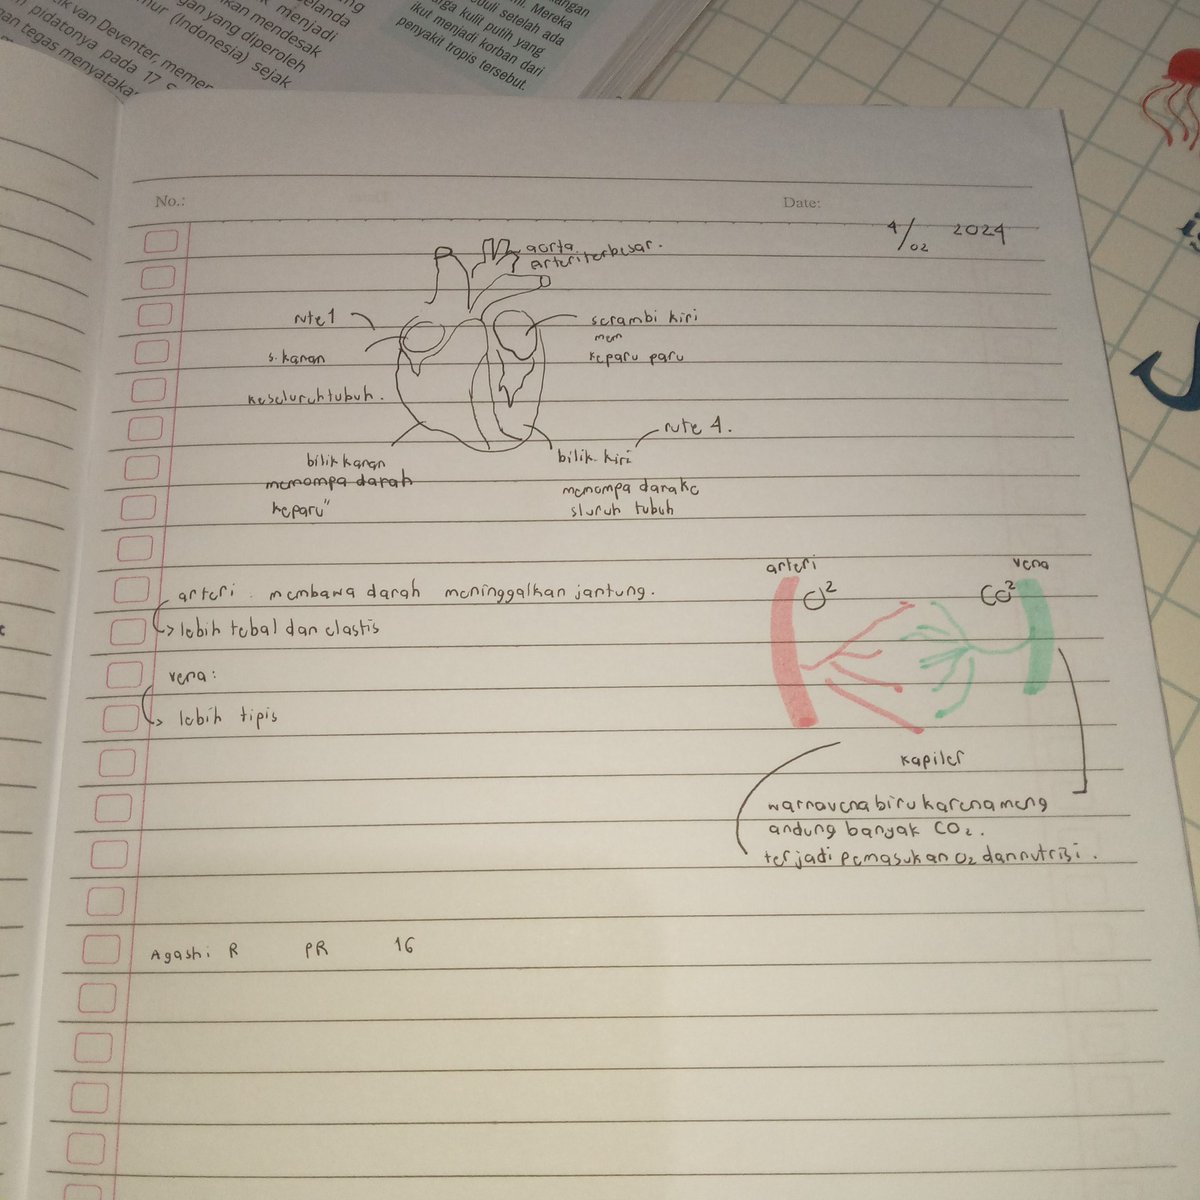 elanda
menjadi
kan mendesak
gan yang diperoleh
mur (Indonesia) sejak
k van Deventer, memer
pidatonya pada 17 S
n tegas menyataka
Mereka
duli setelah ada
arga kulit putih yang
ikut menjadi korban dari
penyakit tropis tersebut.
No.:
Date:
4/02 2024
aorta
arteri terbesar.
rute 1
serambi kiri
mem
s. kanan
keparu paru
keseluruh tubuh.
rute 4.
bilik kanan
bilik. kiri
memompa darah
memompa darake
keparu"
sluruh tubuh
arteri
vena
O²
CO²
arteri : membawa darah meninggalkan jantung.
> lebih tebal dan elastis
vena :
> lebih tipis
kapiler
warna vena biru karena meng
andung banyak CO₂.
terjadi pemasukan O₂ dan nutrisi.
Agashi R PR 16